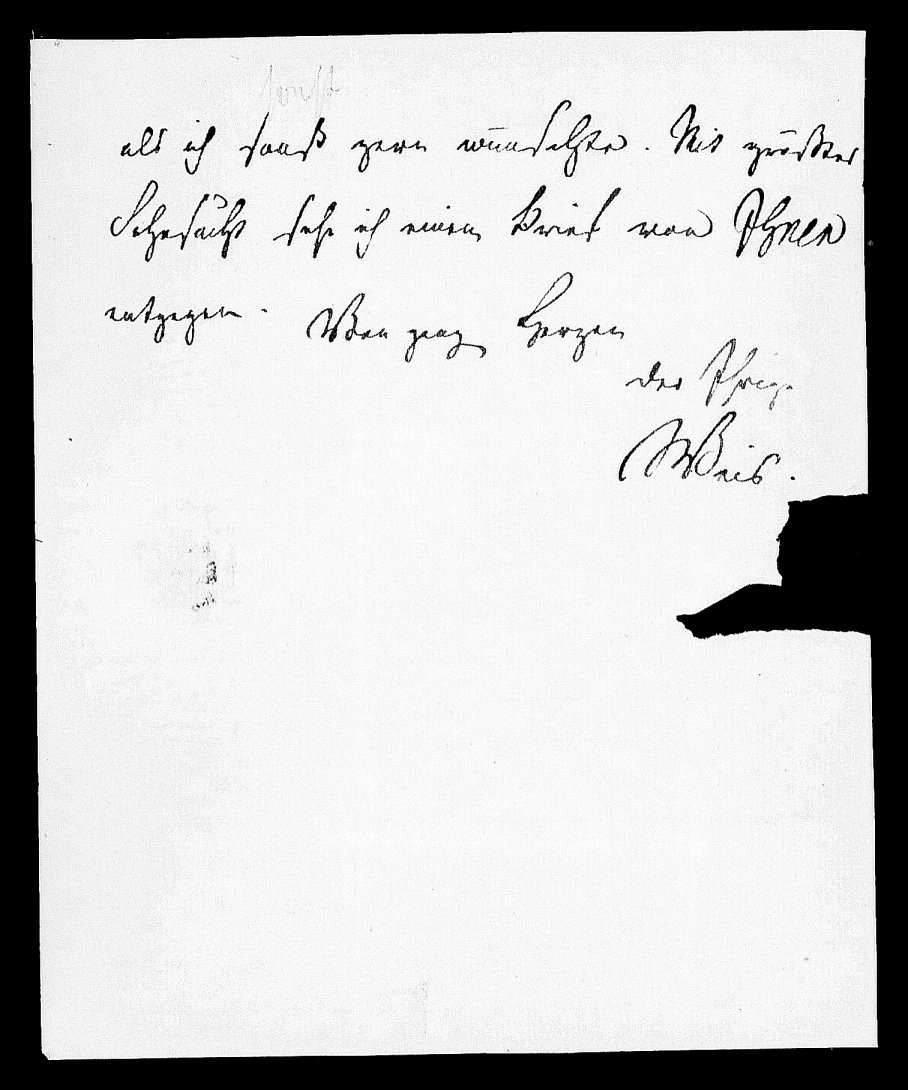 sonst
als ich sonst gern wünschte. Mit größter
Sehnsucht sehe ich einem Brief von Ihnen
entgegen. Von ganzem Herzen
der Ihrige
Weis.